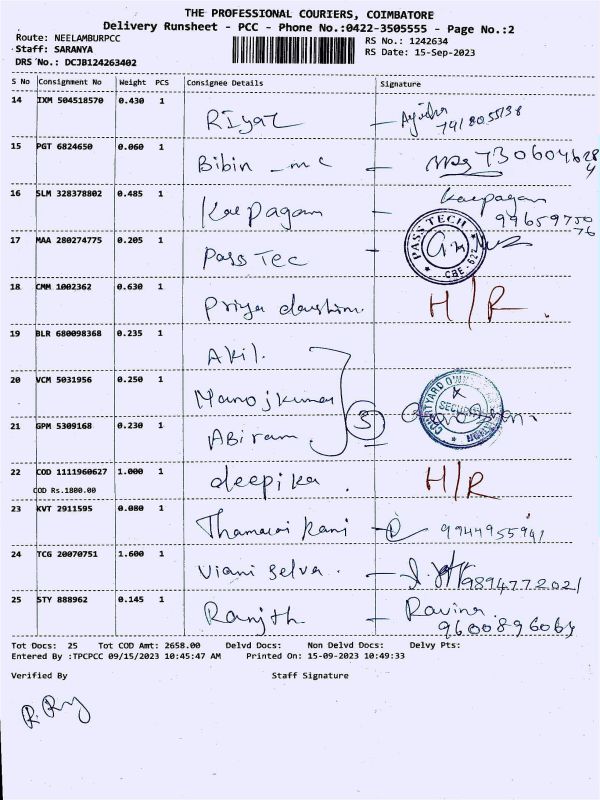 THE PROFESSIONAL COURIERS, COIMBATORE
Delivery Runsheet - PCC - Phone No.:0422-3505555 - Page No.:2
Route: NEELAMBURPCC
RS No.: 1242634
Staff: SARANYA
RS Date: 15-Sep-2023
DRS No.: DCJB124263402
S No Consignment No Weight PCS Consignee Details Signature
14 IXM 504518570 0.430 1
Riyaz
15 PGT 6824650 0.060 1
Bibin
16 SLM 328378802 0.485 1
Karpagam Karpagam
17 MAA 280274775 0.205 1
Pass Tec PASS TECH CBE-622
18 CMM 1002362 0.630 1
Priya H/R.
19 BLR 680098368 0.235 1
Akil.
20 VCM 5031956 0.250 1
Manojkumar
21 GPM 5309168 0.230 1
Abiram. S SECURITY
22 COD 1111960627 1.000 1
deepika. H/R
COD Rs.1800.00
23 KVT 2911595 0.080 1
Thamarai Kani 9944955941
24 TCG 20070751 1.600 1
Viani Selva. 9894772021
25 STY 888962 0.145 1
Ranjth Ravina
9600896064
Tot Docs: 25 Tot COD Amt: 2658.00 Delvd Docs: Non Delvd Docs: Delvy Pts:
Entered By :TPCPCC 09/15/2023 10:45:47 AM Printed On: 15-09-2023 10:49:33
Verified By Staff Signature